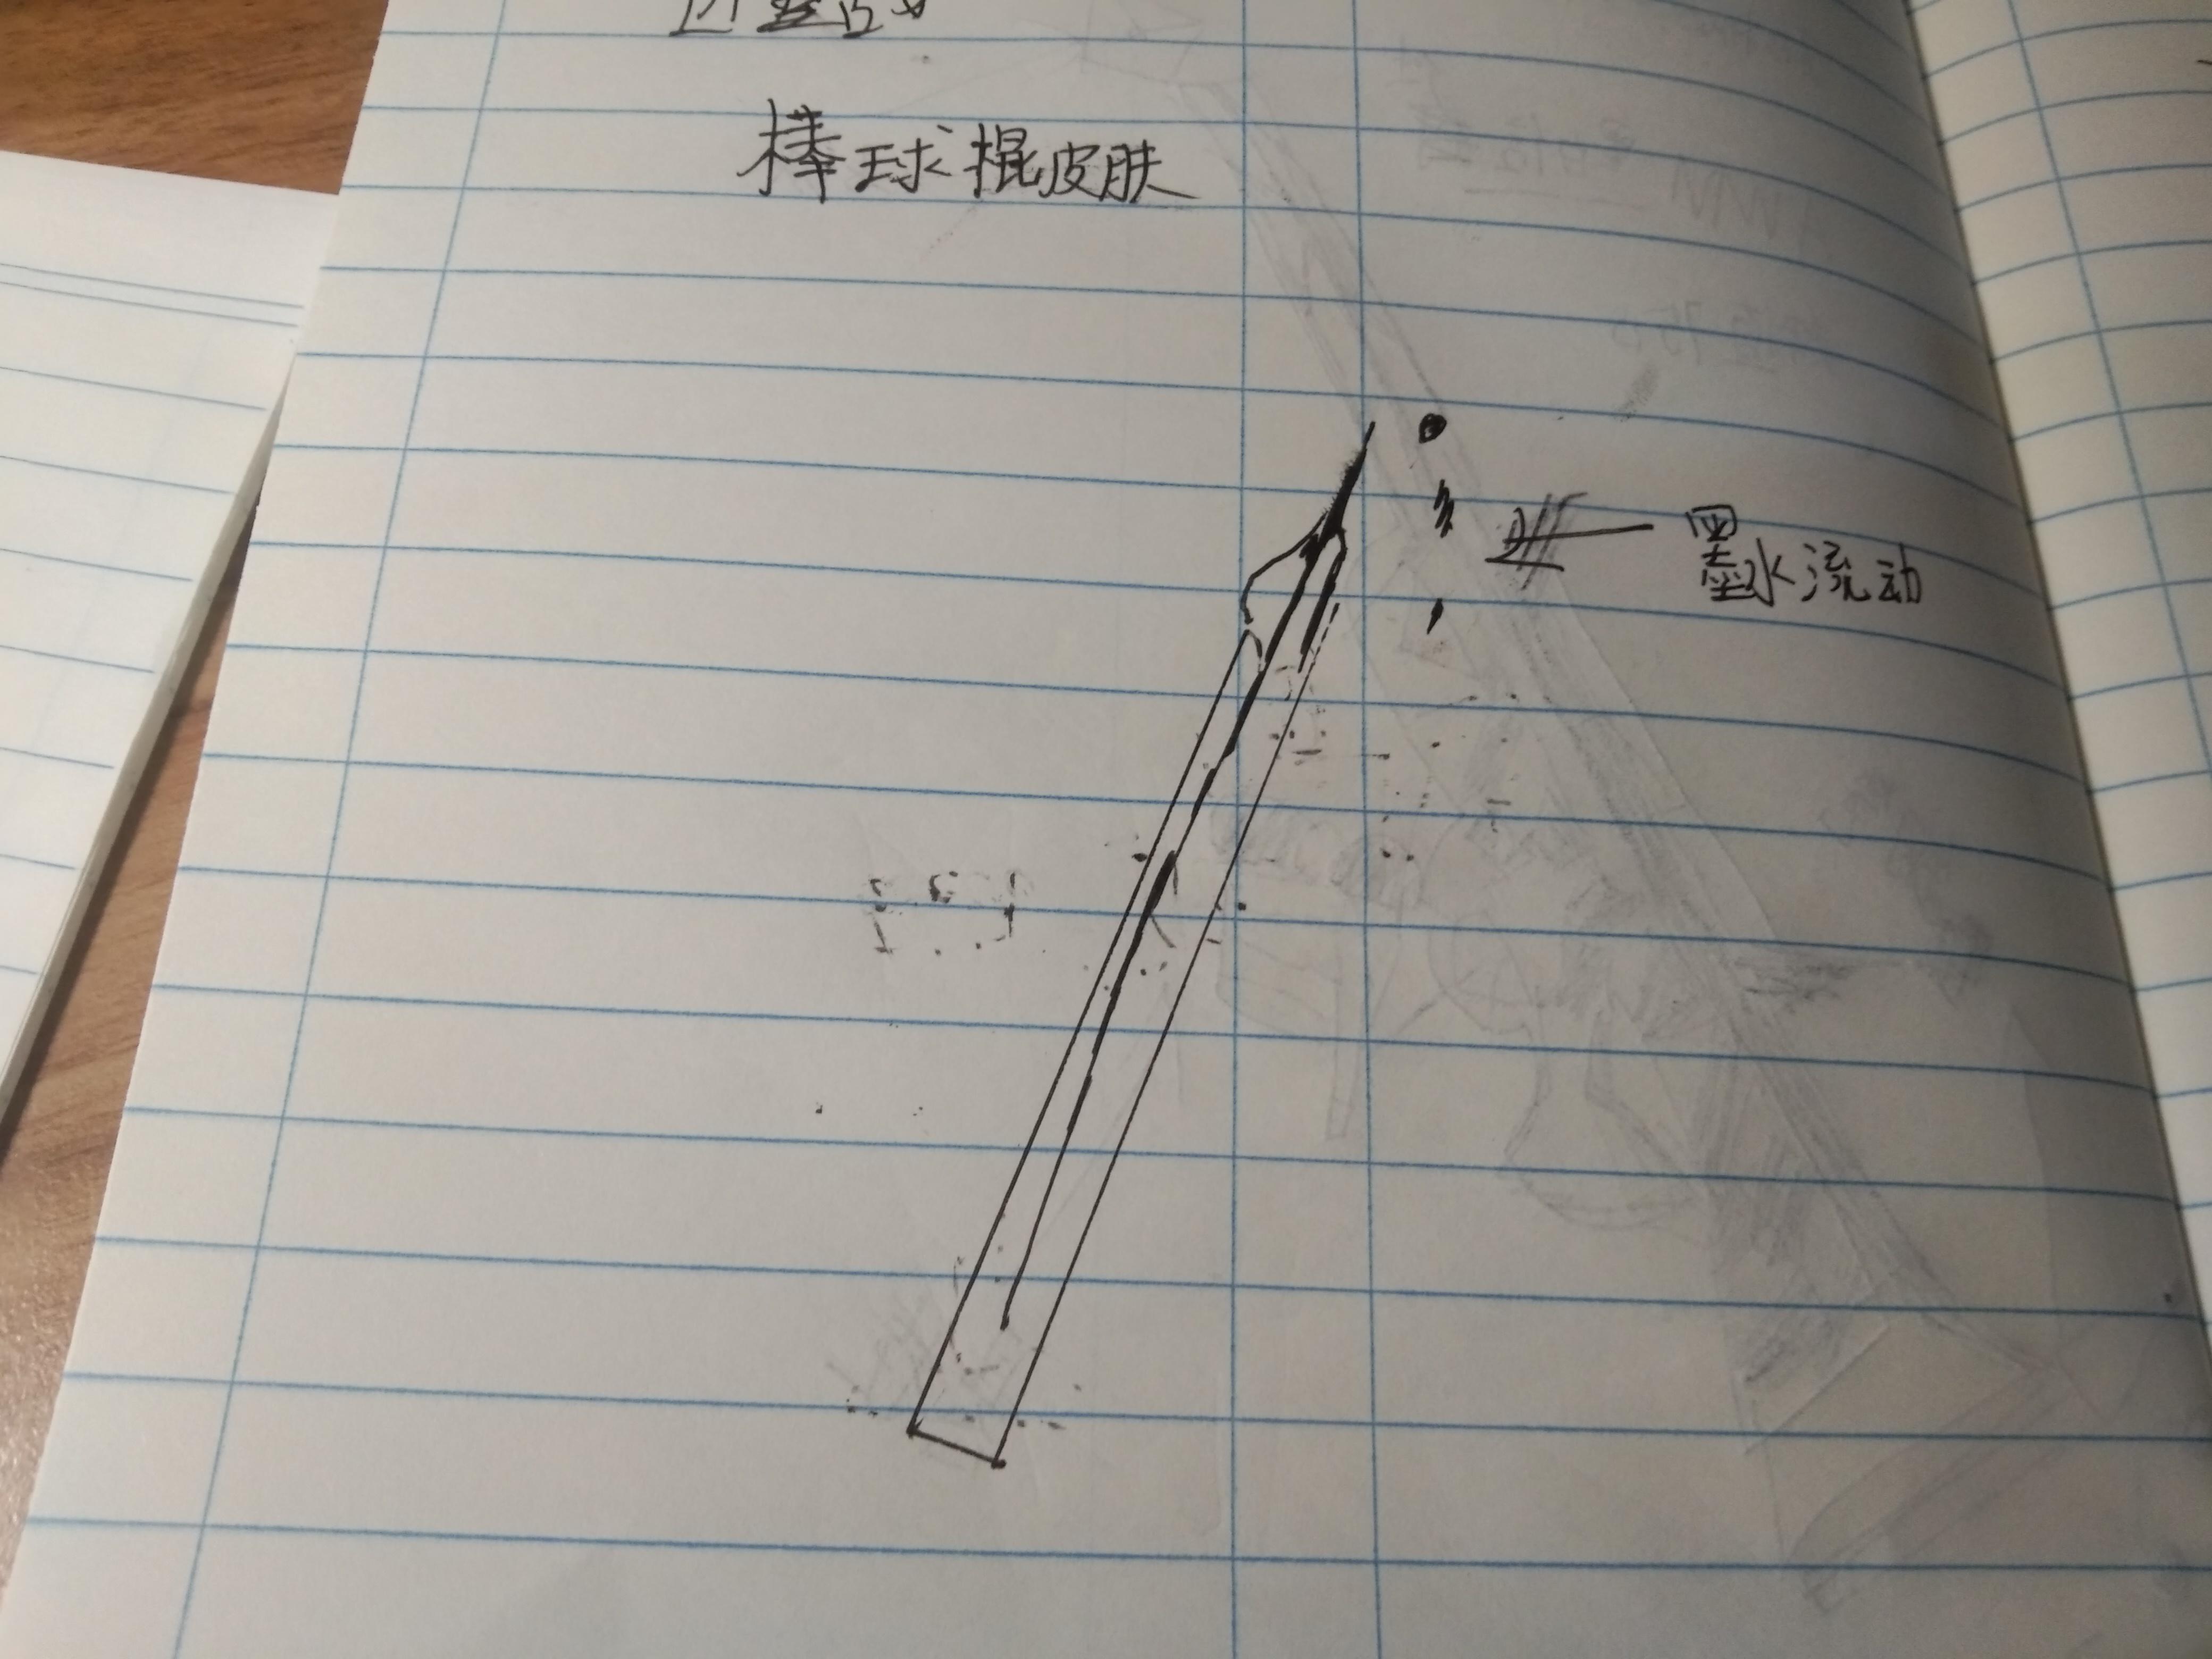 棒球棍皮肤
墨水流动